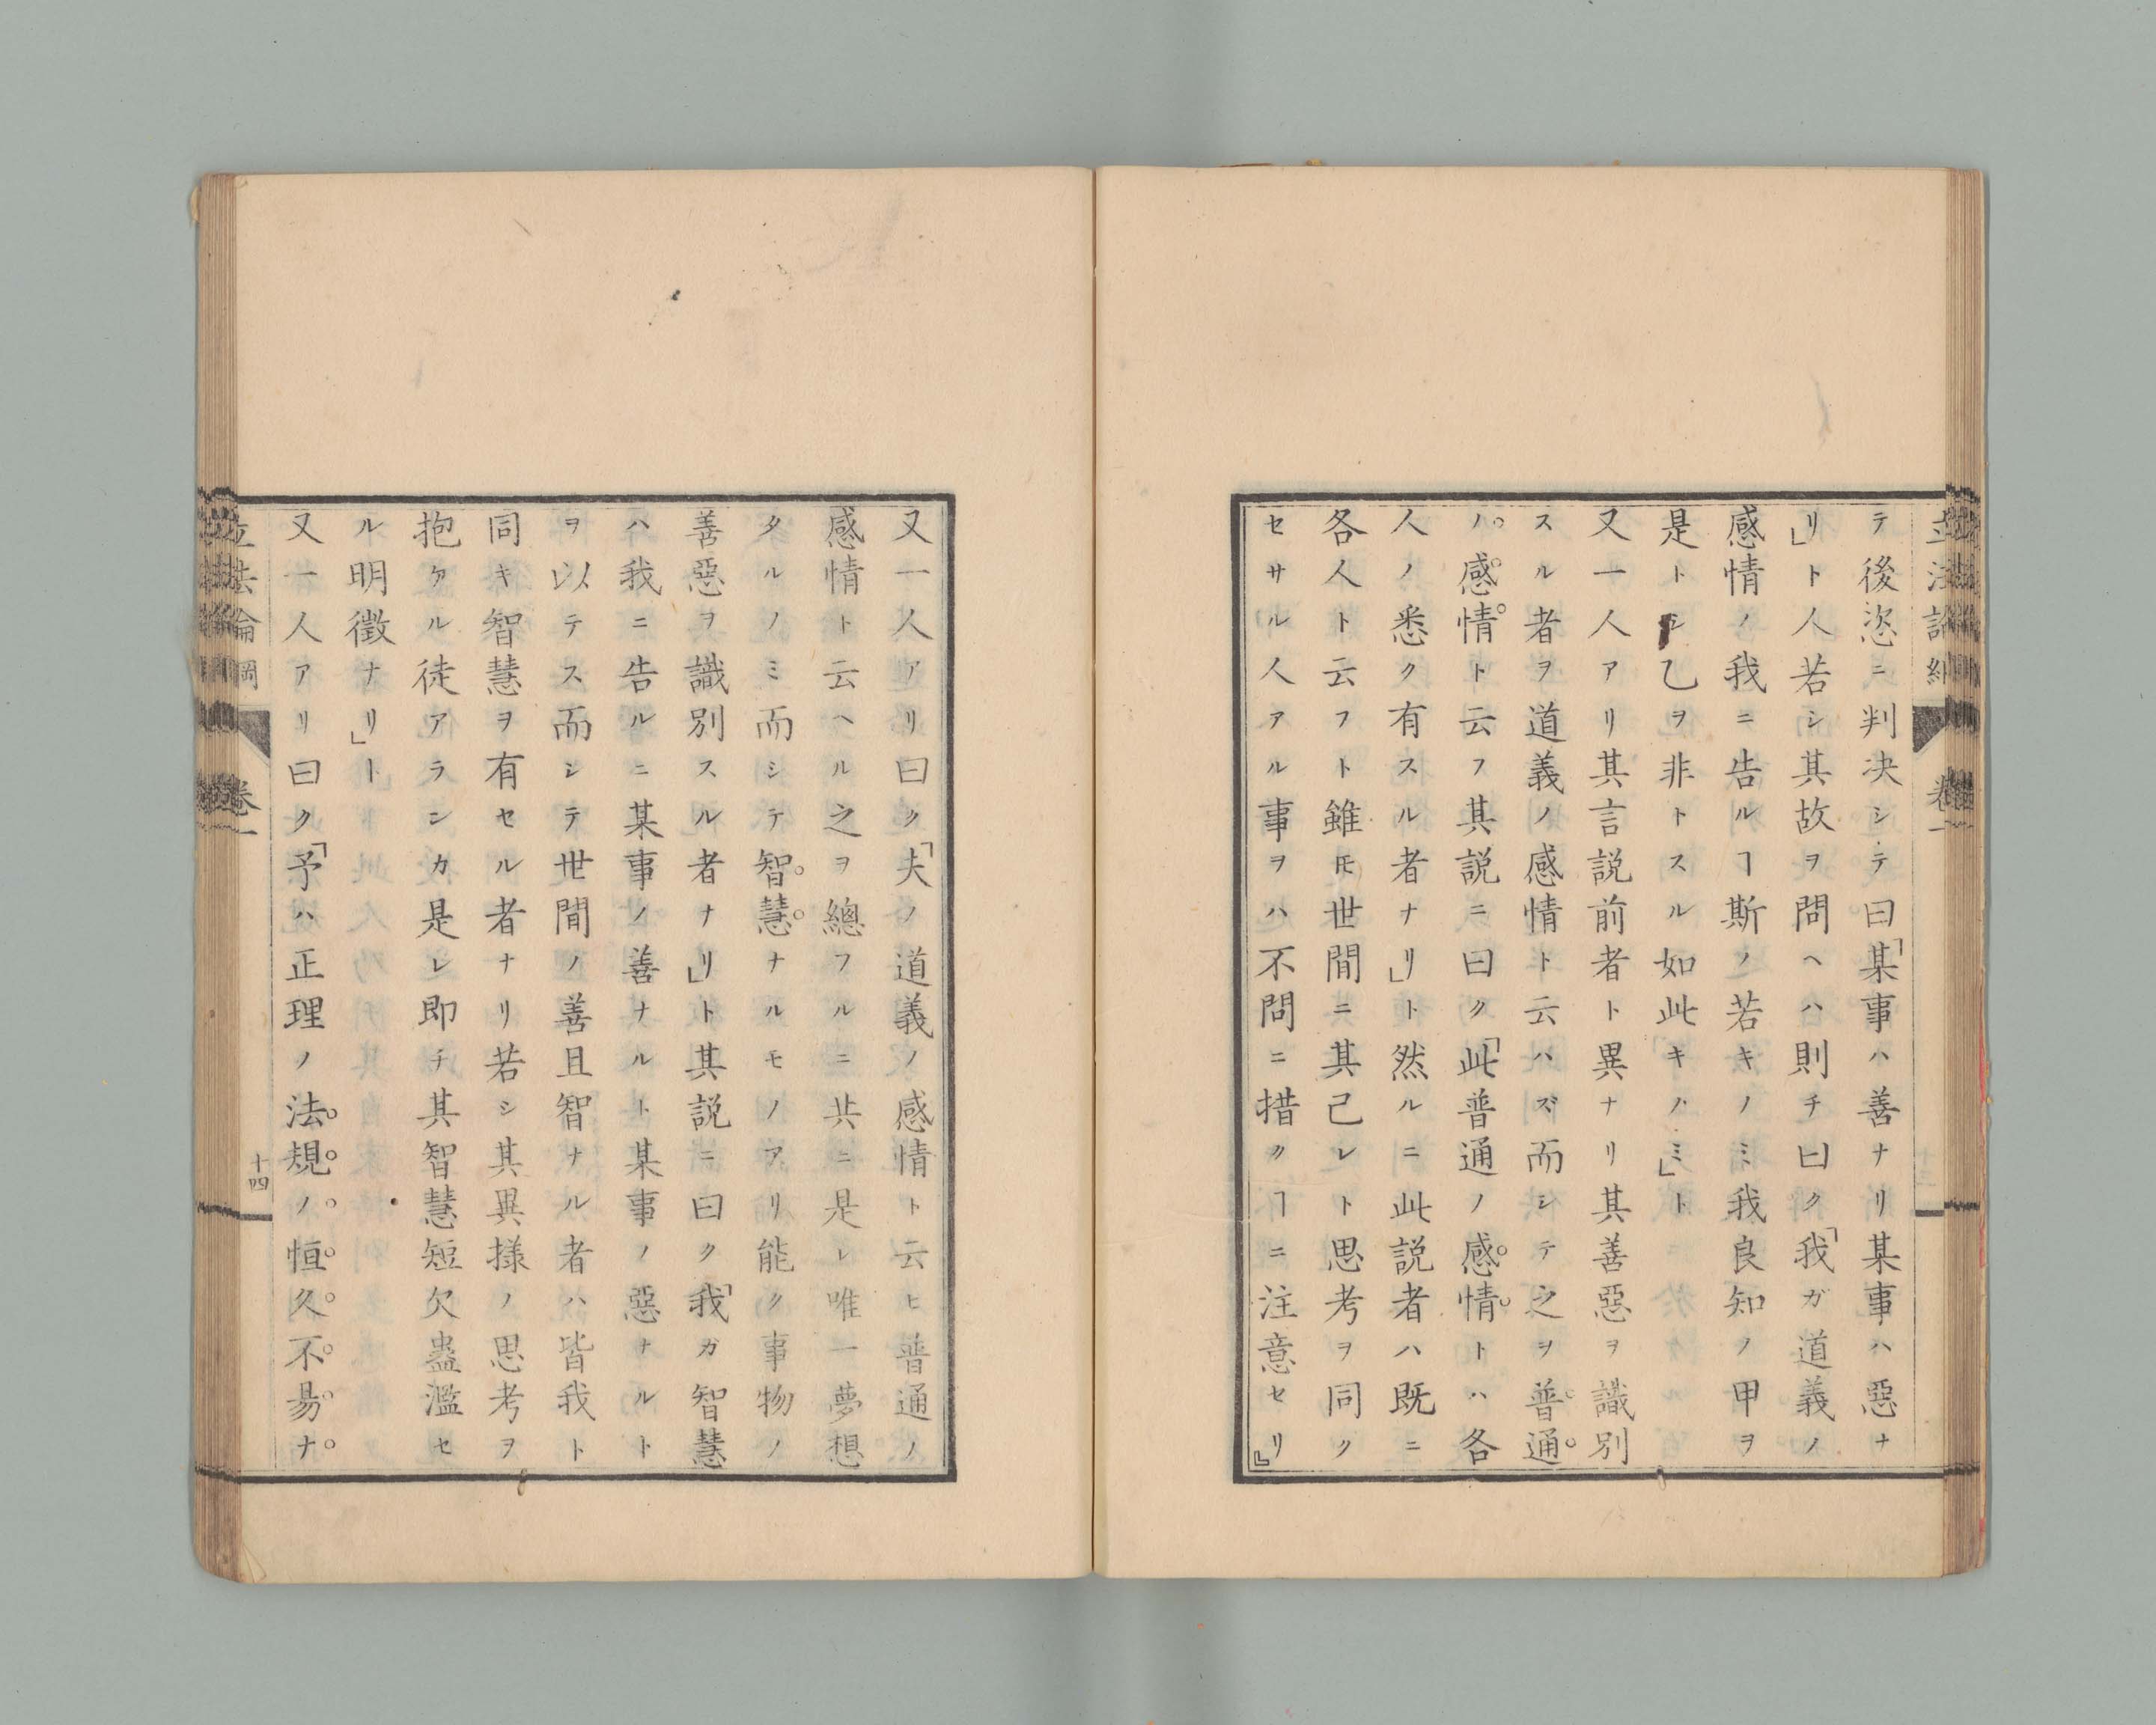 テ後恣ニ判决シテ曰「某事ハ善ナリ某事ハ惡ナ
リ」ト人若シ其故ヲ問ヘハ則チ曰ク「我ガ道義ノ
感情ノ我ニ告ルヿ斯ノ若キノミ我良知ノ甲ヲ
是トシ乙ヲ非トスル如此キノミ」ト
又一人アリ其言説前者ト異ナリ其善惡ヲ識別
スル者ヲ道義ノ感情ト云ハズ而シテ之ヲ普通
ノ感情ト云フ其説ニ曰ク「此普通ノ感情トハ各
人ノ悉ク有スル者ナリ」ト然ルニ此説者ハ既ニ
各人ト云フト雖𪜈世間ニ其己レト思考ヲ同ク
セサル人アル事ヲハ不問ニ措クヿニ注意セリ』
又一人アリ曰ク「夫ノ道義ノ感情ト云ヒ普通ノ
感情ト云ヘル之ヲ總フルニ共ニ是レ唯一夢想
タルノミ而シテ智慧ナルモノアリ能ク事物ノ
善惡ヲ識別スル者ナリ」ト其説ニ曰ク「我ガ智慧
ハ我ニ告ルニ某事ノ善ナルト某事ノ惡ナルト
ヲ以テス而シテ世間ノ善且智ナル者ハ皆我ト
同キ智慧ヲ有セル者ナリ若シ其異樣ノ思考ヲ
抱ケル徒アランカ是レ即チ其智慧短欠蠱濫セ
ル明徴ナリ」ト
又一人アリ曰ク「予ハ正理ノ法規ノ恒久不易ナ
立法論綱
卷一
十四